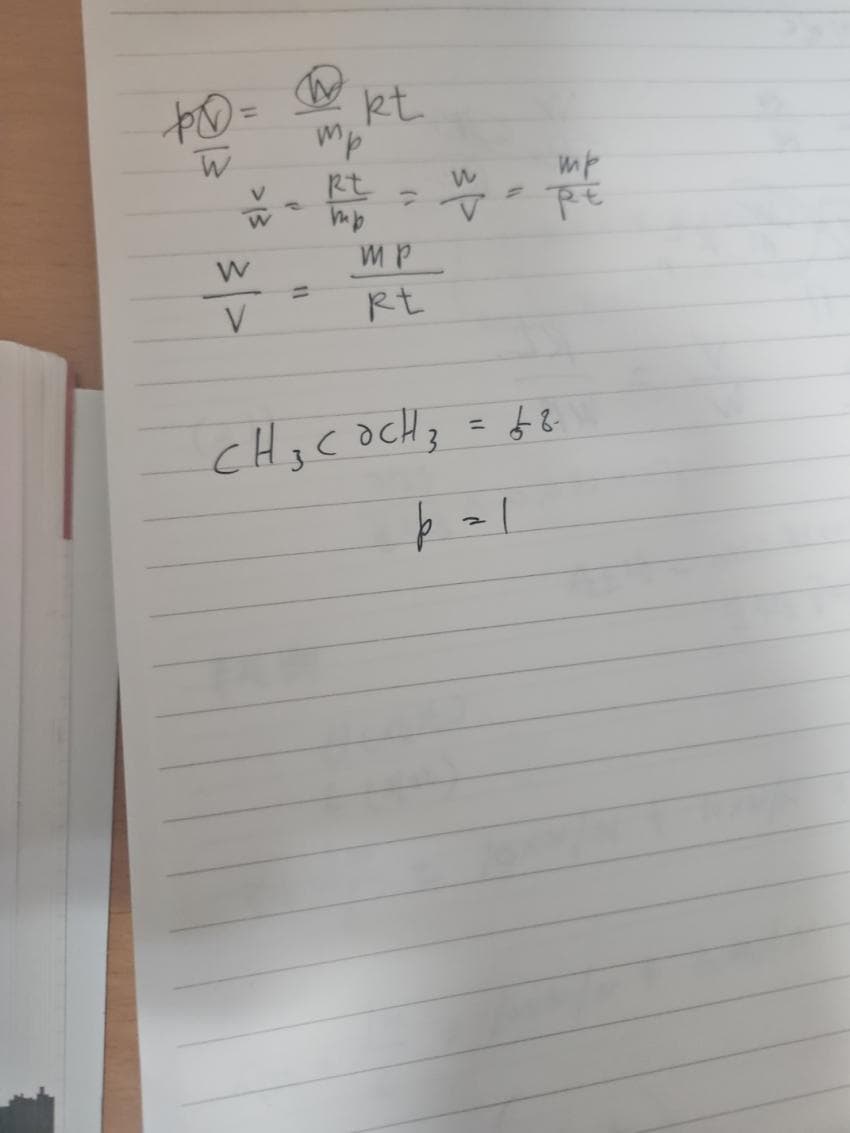 pV/W = W/mp Rt
V/W = Rt/mp = W/V = mp/Rt
W/V = mp/Rt
CH3COCH3 = 58.
p = 1